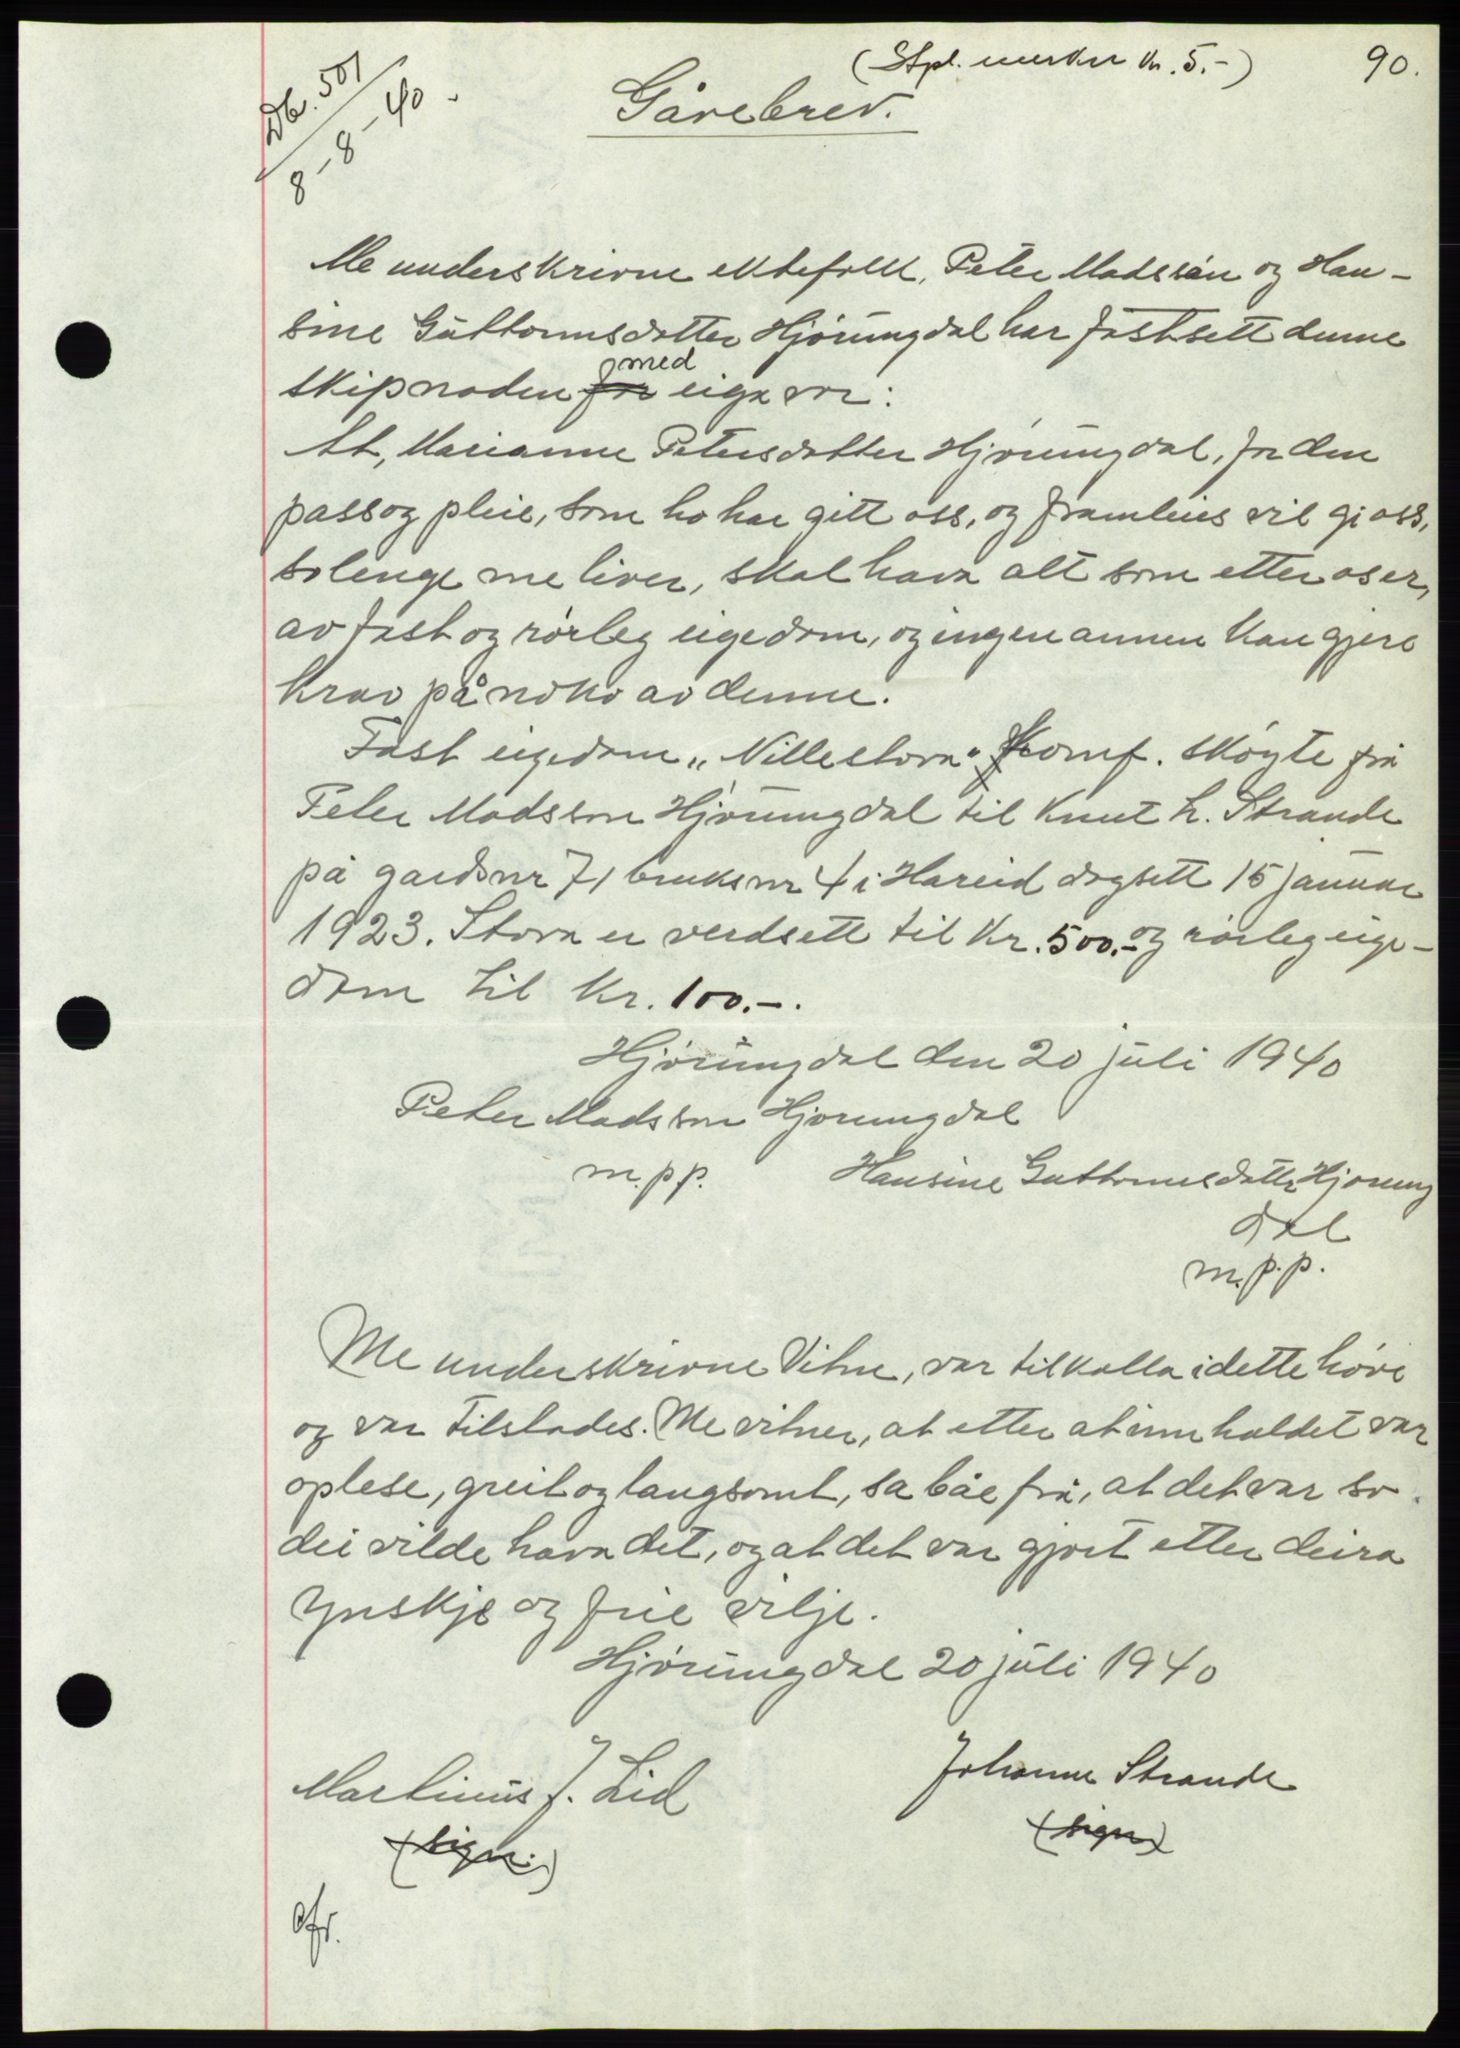 (Stpl. merker kr. 5.-)
90.
Db. 501
8-8-40.
Gåvebrev.
Me underskrivne ektefolk, Peter Madsson og Han-
sine Guttormsdotter Hjörungdal har fastsett denne
skipnaden for med eiga vor:
At, Marianne Petersdotter Hjörungdal, for den
pass og pleie, som ho har gitt oss, og framleies vil gi oss,
solenge me liver, skal hava alt som etter os er,
av fast og rörleg eigedom, og ingen annen kan gjere
krav på noko av denne.
Fast eigedom „Nillestova" komf. sköyte frå
Peter Madsson Hjörungdal til Knut L. Strande
på gardsnr 71 bruksnr 4 i Hareid dagsett 15 januar
1923. Stova er verdsett til kr. 500.- og rörleg eige-
dom til kr. 100.-.
Hjörungdal den 20 juli 1940
Peter Madsson Hjorungdal
m.p.p.
Hansine Guttormsdotter Hjorung
dal
m.p.p.
Me underskrivne Vitne, var tilkalla i dette höve
og var tilstades. Me vitner, at etter at innhaldet var
oplese, greit og langsomt, sa båe frå, at det var so
dei vilde hava det, og at det var gjort etter deira
ynskje og frie vilje.
Hjörungdal 20 juli 1940
Martinus J. Lid
(sign.)
Johanne Strande
(sign)
Afr.